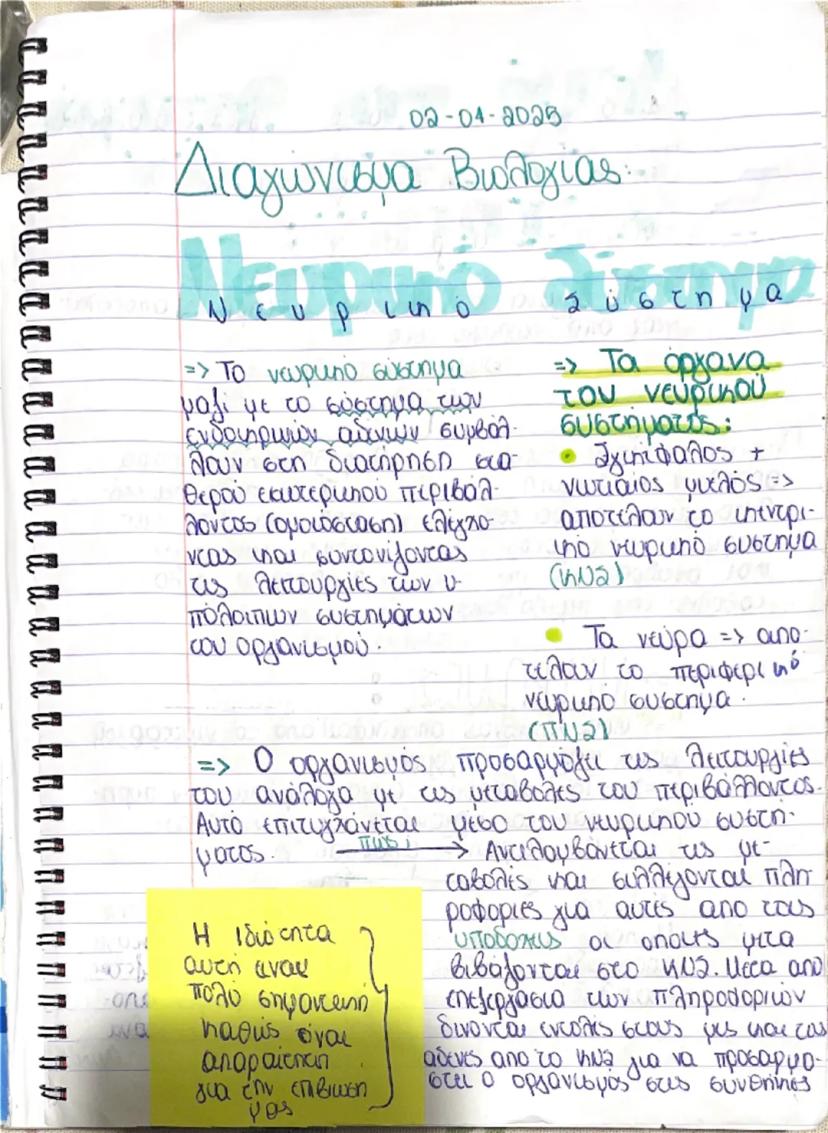 02-01-2025
Διαγώνισμα Βιολογίας:
Νευρικό Σύστημα
Νευρικό Σύστημα
=> Το νευρικό σύστημα
μαζί με το σύστημα των
ενδοκρινών αδένων συμβάλ-
λουν στη διατήρηση στα-
θερού εσωτερικού περιβάλ-
λοντος (ομοιόσταση) ελέγχο-
ντας και συντονίζοντας
τις λειτουργίες των υ-
πόλοιπων συστημάτων
του οργανισμού.
=> Τα όργανα
του νευρικού
συστήματος:
• Εγκέφαλος +
νωτιαίος μυελός =>
αποτελούν το κεντρι-
κό νευρικό σύστημα
(ΚΝΣ)
• Τα νεύρα => απο-
τελούν το περιφερικό
νευρικό σύστημα.
(ΠΝΣ)
=> Ο οργανισμός προσαρμόζει τις λειτουργίες
του ανάλογα με τις μεταβολές του περιβάλλοντος.
Αυτό επιτυγχάνεται μέσο του νευρικού συστή-
ματος. πως; → Αντιλαμβάνεται τις με-
ταβολές και συλλέγονται πλη
ροφορίες για αυτές απο τους
υποδοχείς οι οποίες μετα
βιβάζονται στο ΚΝΣ. Μετα απο
επεξεργασία των πληροφοριών
δινονται εντολές στους μυς και τους
αδένες απο το ΚΝΣ για να προσαρμο-
στει ο οργανισμός στις συνθήκες
Η ιδιότητα
αυτή είναι
πολύ σημαντική
καθώς είναι
απαραίτητη
για την επιβίωση
μας